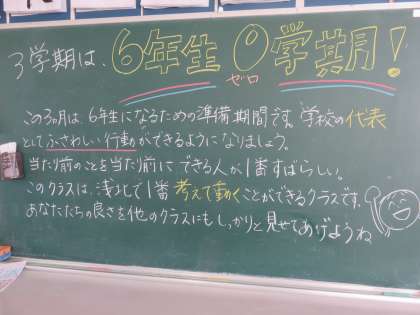 3学期は、6年生0学期!
ゼロ
この3ヶ月は、6年生になるための準備期間です。学校の代表
としてふさわしい行動ができるようになりましょう。
当たり前のことを当たり前にできる人が1番すばらしい。
このクラスは、浅小して1番考えて動くことができるクラスです。
あなたたちの良さを他のクラスにもしっかりと見せてあげようね